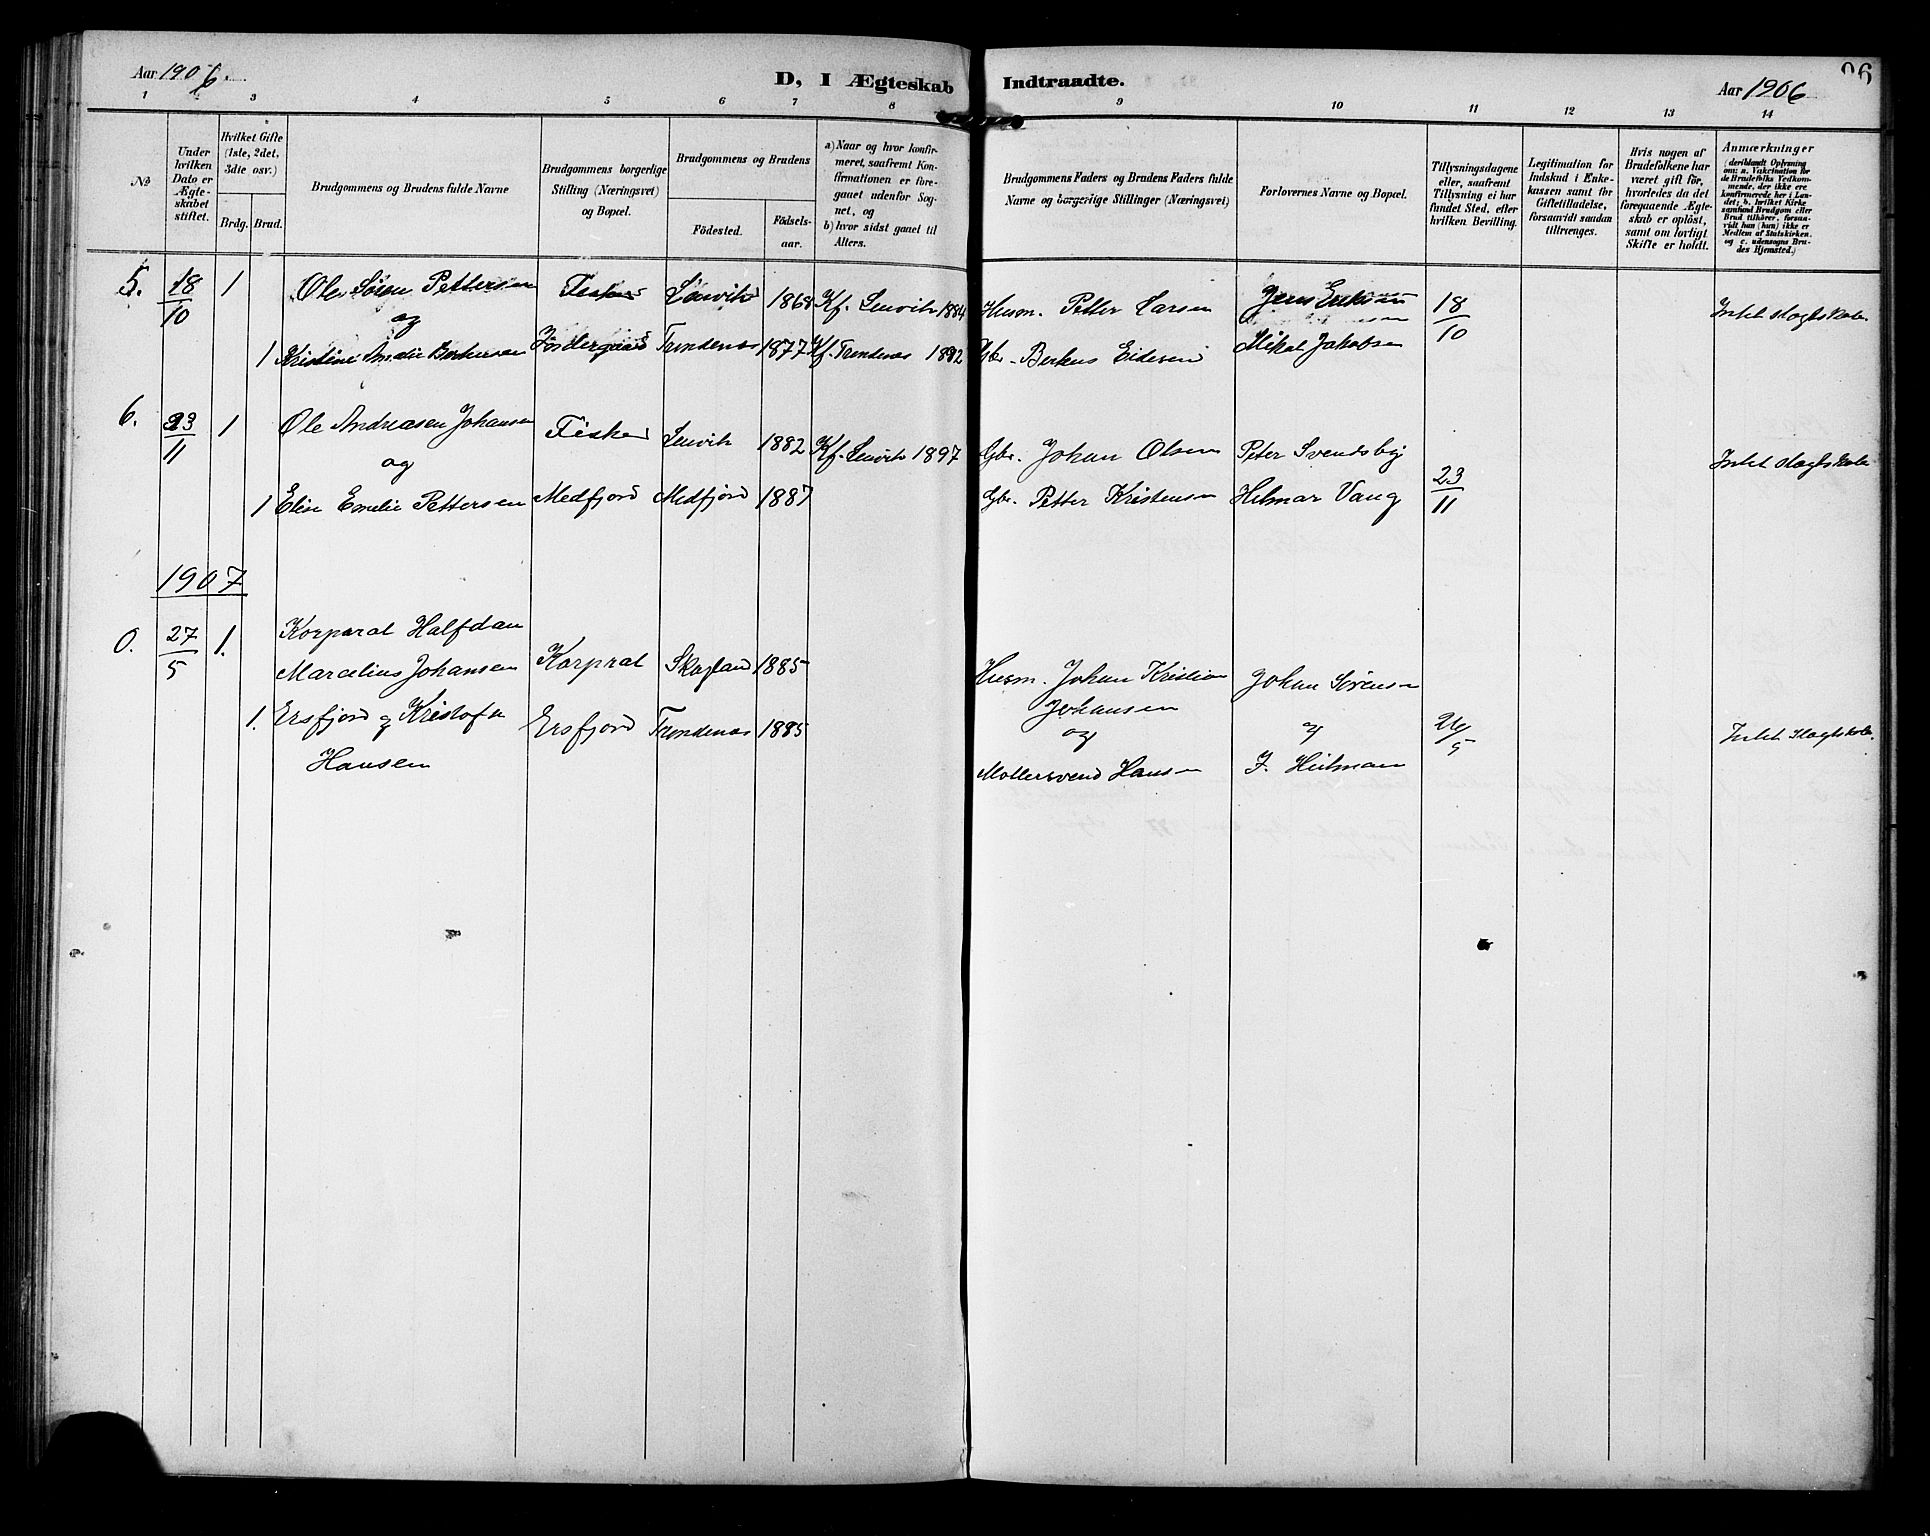 Aar 1906.
D, I Ægteskab Indtraadte.
Aar 1906
1 2 3 4 5 6 7 8 9 10 11 12 13 14
№
Under hvilken Dato er Ægteskabet stiftet.
Hvilket Gifte (1ste, 2det, 3die osv.)
Brdg. Brud.
Brudgommens og Brudens fulde Navne
Brudgommens borgerlige Stilling (Næringsvei) og Bopæl.
Brudgommens og Brudens
Födested.
Födselsaar.
a) Naar og hvor konfirmeret, saafremt Konfirmationen er foregaaet udenfor Sognet, og
b) hvor sidst gaaet til Alters.
Brudgommens Faders og Brudens Faders fulde Navne og borgerlige Stillinger (Næringsvei)
Forlovernes Navne og Bopæl.
Tillysningsdagene eller, saafremt Tillysning ei har fundet Sted, efter hvilken Bevilling.
Legitimation for Indskud i Enkekassen samt for Giftetilladelse, forsaavidt saadan tiltrænges.
Hvis nogen af Brudefolkene har været gift för, hvorledes da det foregaaende Ægteskab er oplöst, samt om lovligt Skifte er holdt.
Anmærkninger
(deriblandt Oplysning om: a. Vakcination for de Brudefolks Vedkommende, der ikke ere konfirmerede her i Landet; b. hvilket Kirkesamfund Brudgom eller Brud tilhører, forsaavidt han (hun) ikke er Medlem af Statskirken, og c. udensogns Brudes Hjemsted.)
5. 18/10 1 Ole Søren Pettersen Fisker Lenvik 1868 Kf. Lenvik 1884 Husm. Petter Larsen 18/10 Intet slægtskab.
og
1 Kristine Amalie Berthensen Trondenæs 1877 Kf. Trondenæs 1892 Gbr. Eidesen Mikal Jakobsen
6. 23/11 1 Ole Andreasen Johansen Fisker Lenvik 1882 Kf. Lenvik 1897 Gbr. Johan Olsen Peter Svendsby 23/11 Intet slægtskab
og
1 Elise Emelie Pettersen Medfjord Medfjord 1887 Gbr. Petter Kristensen Hilmar Vang
1907
0. 27/5 1. Korporal Halfdan
Marcelius Johansen Korpral Skogland 1885 Husm. Johan Kristian Johan Sørensen
Johansen
1. Ersfjord og Kristofa Ersfjord Trondenæs 1885 og og 26/5 Intet Slægtskab.
Hansen Møllersvend Hansen J.